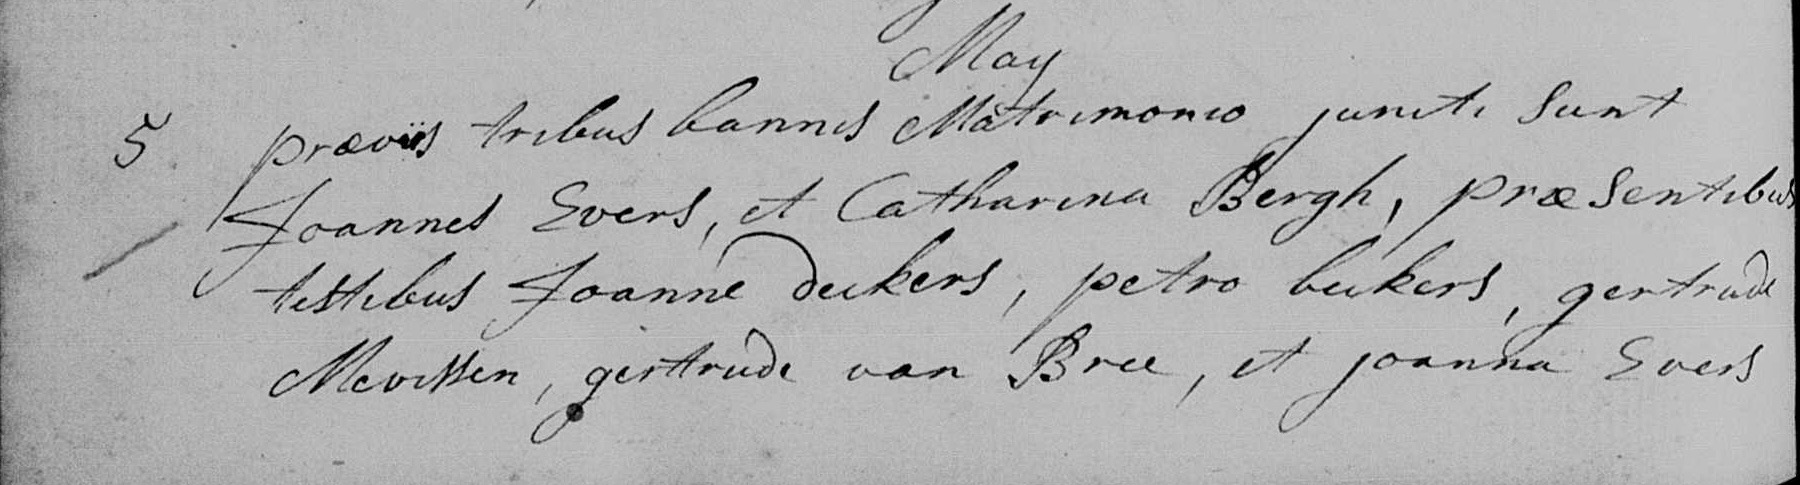 May
5 præviis tribus bannis Matrimonio juncti sunt
Joannes Evers, et Catharina Bergh, præsentibus
testibus Joanne deckers, petro beckers, gertrude
Mevissen, gertrude van Bree, et joanna Evers